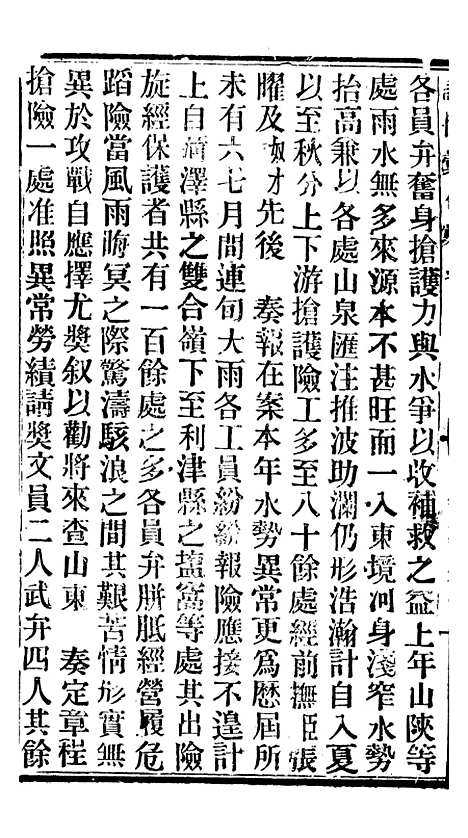 各員弁奮身搶護力與水爭以收補救之益上年山陝等
處雨水無多來源本不甚旺而一入東境河身淺窄水勢
抬高兼以各處山泉匯注推波助瀾仍形浩瀚計自入夏
以至秋分上下游搶護險工多至八十餘處經前撫臣張
曜及 才先後　奏報在案本年水勢異常更爲歷屆所
未有六七月間連旬大雨各工員紛紛報險應接不遑計
上自 澤縣之雙合嶺下至利津縣之鹽窩等處其出險
旋經保護者共有一百餘處之多各員弁胼胝經營履危
蹈險當風雨晦冥之際驚濤駭浪之間其艱苦情形實無
異於攻戰自應擇尤獎叙以勸將來查山東　奏定章程
搶險一處准照異常勞績請獎文員二人武弁四人其餘